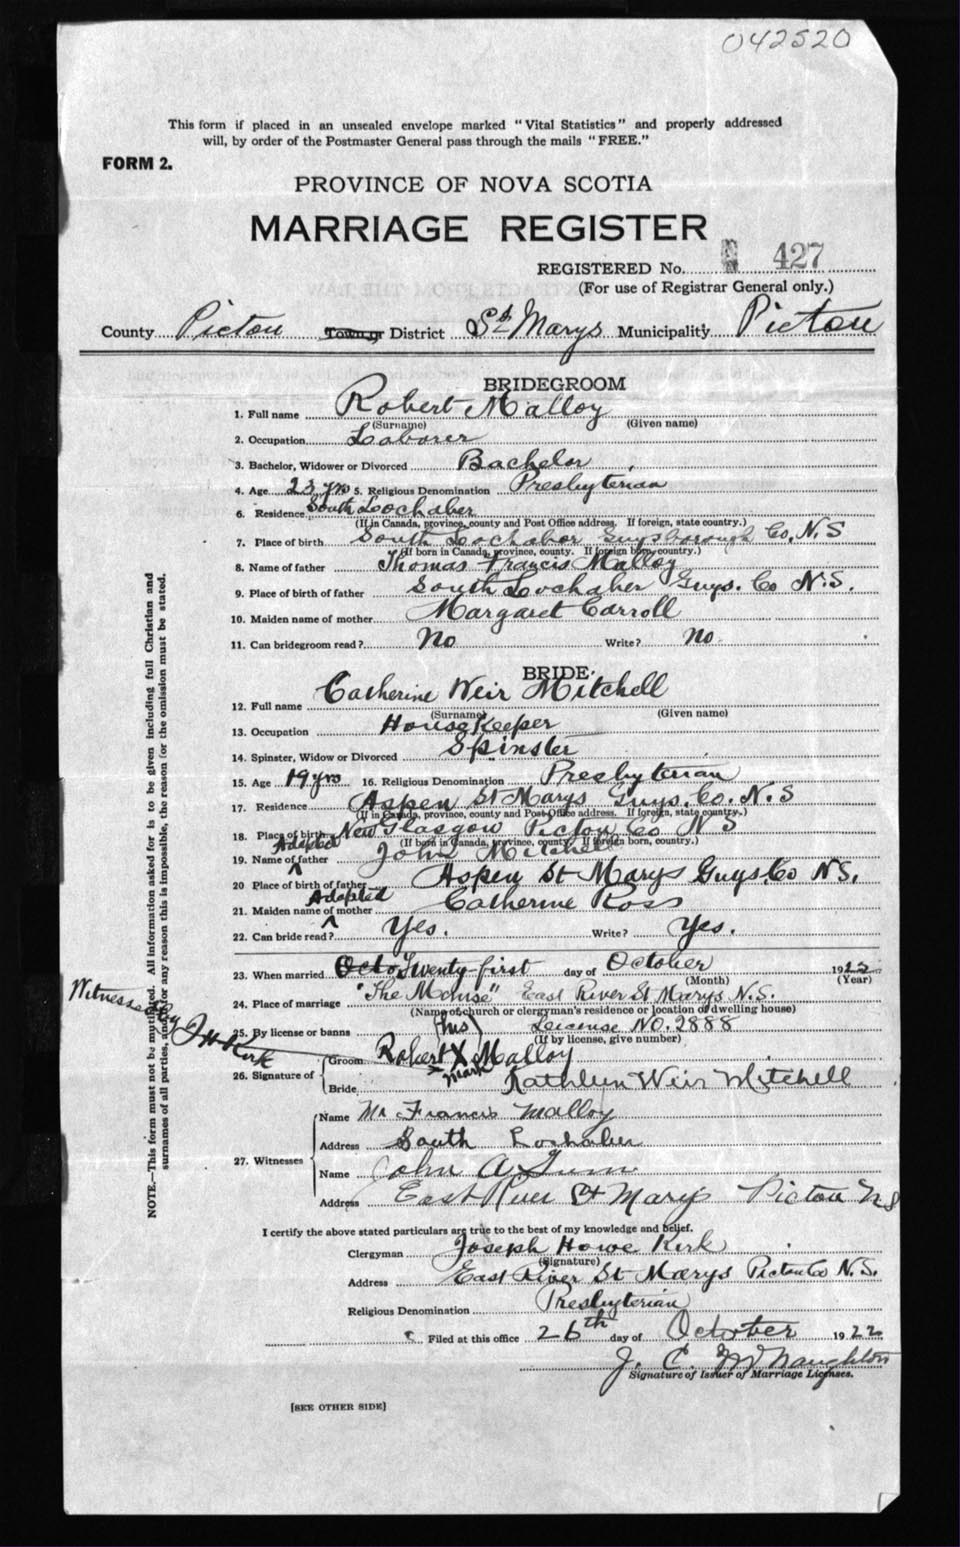 042520
This form if placed in an unsealed envelope marked "Vital Statistics" and properly addressed
will, by order of the Postmaster General pass through the mails "FREE."
FORM 2.
PROVINCE OF NOVA SCOTIA
MARRIAGE REGISTER
REGISTERED No. 427
(For use of Registrar General only.)
County Pictou Town or District St Marys Municipality Pictou
BRIDEGROOM
1. Full name Robert Malloy
(Surname) (Given name)
2. Occupation Laborer
3. Bachelor, Widower or Divorced Bachelor
4. Age 23 yrs 5. Religious Denomination Presbyterian
6. Residence South Lochaber
(If in Canada, province, county and Post Office address. If foreign, state country.)
7. Place of birth South Lochaber Guysborough Co, N.S
(If born in Canada, province, county. If foreign born, country.)
8. Name of father Thomas Francis Malloy
9. Place of birth of father South Lochaber Guys. Co N.S.
10. Maiden name of mother Margaret Carroll
11. Can bridegroom read? No Write? No.
BRIDE.
12. Full name Catherine Weir Mitchell
(Surname) (Given name)
13. Occupation House Keeper
14. Spinster, Widow or Divorced Spinster
15. Age 19 yrs 16. Religious Denomination Presbyterian
17. Residence Aspen St Marys Guys. Co. N.S
(If in Canada, province, county and Post Office address. If foreign, state country.)
18. Place of birth New Glasgow Pictou Co N S
(If born in Canada, province, county. If foreign born, country.)
Adopted
19. Name of father John Mitchell
20 Place of birth of father Aspen St Marys Guys. Co N.S.
Adopted
21. Maiden name of mother Catherine Ross
22. Can bride read? Yes. Write? Yes.
23. When married Octo Twenty-first day of October 1922
(Month) (Year)
24. Place of marriage "The Manse" East River St Marys N.S.
(Name of church or clergyman's residence or location of dwelling house)
25. By license or banns License No. 2888
(If by license, give number)
Witnessed by J H Kirk
26. Signature of
Groom Robert (his) X mark Malloy
Bride Kathleen Weir Mitchell
27. Witnesses
Name Mr Francis Malloy
Address South Lochaber
Name John A. Gunn
Address East River St Marys Pictou N S
I certify the above stated particulars are true to the best of my knowledge and belief.
Clergyman Joseph Howe Kirk
(Signature)
Address East River St Marys Pictou Co N.S.
Religious Denomination Presbyterian
Filed at this office 26th day of October 1922
J. C. McNaughton
Signature of Issuer of Marriage Licenses.
[SEE OTHER SIDE]
NOTE.—This form must not be mutilated. All information asked for is to be given including full Christian and
surnames of all parties, and for any reason this is impossible, the reason for the omission must be stated.